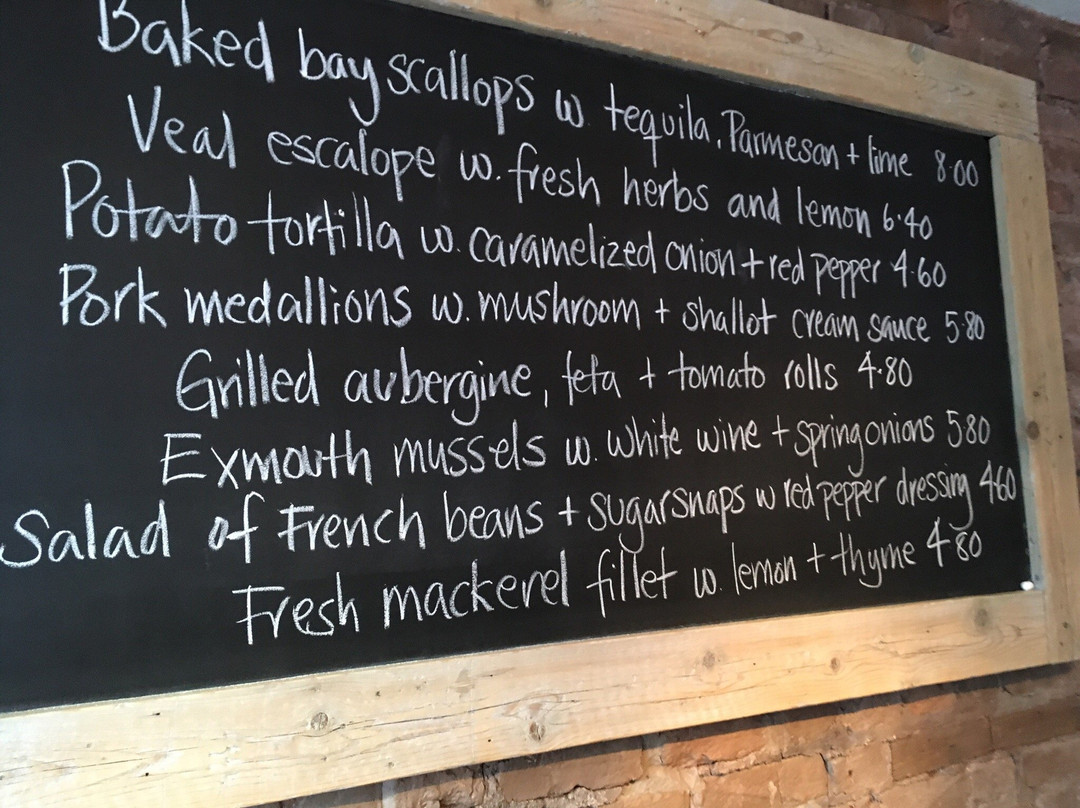 Baked bay scallops w. tequila, Parmesan + lime 8.00
Veal escalope w. fresh herbs and lemon 6.40
Potato tortilla w. caramelized onion + red pepper 4.60
Pork medallions w. mushroom + shallot cream sauce 5.80
Grilled aubergine, feta + tomato rolls 4.80
Exmouth mussels w. white wine + spring onions 5.80
Salad of French beans + sugarsnaps w red pepper dressing 460
Fresh mackerel fillet w. lemon + thyme 4.80